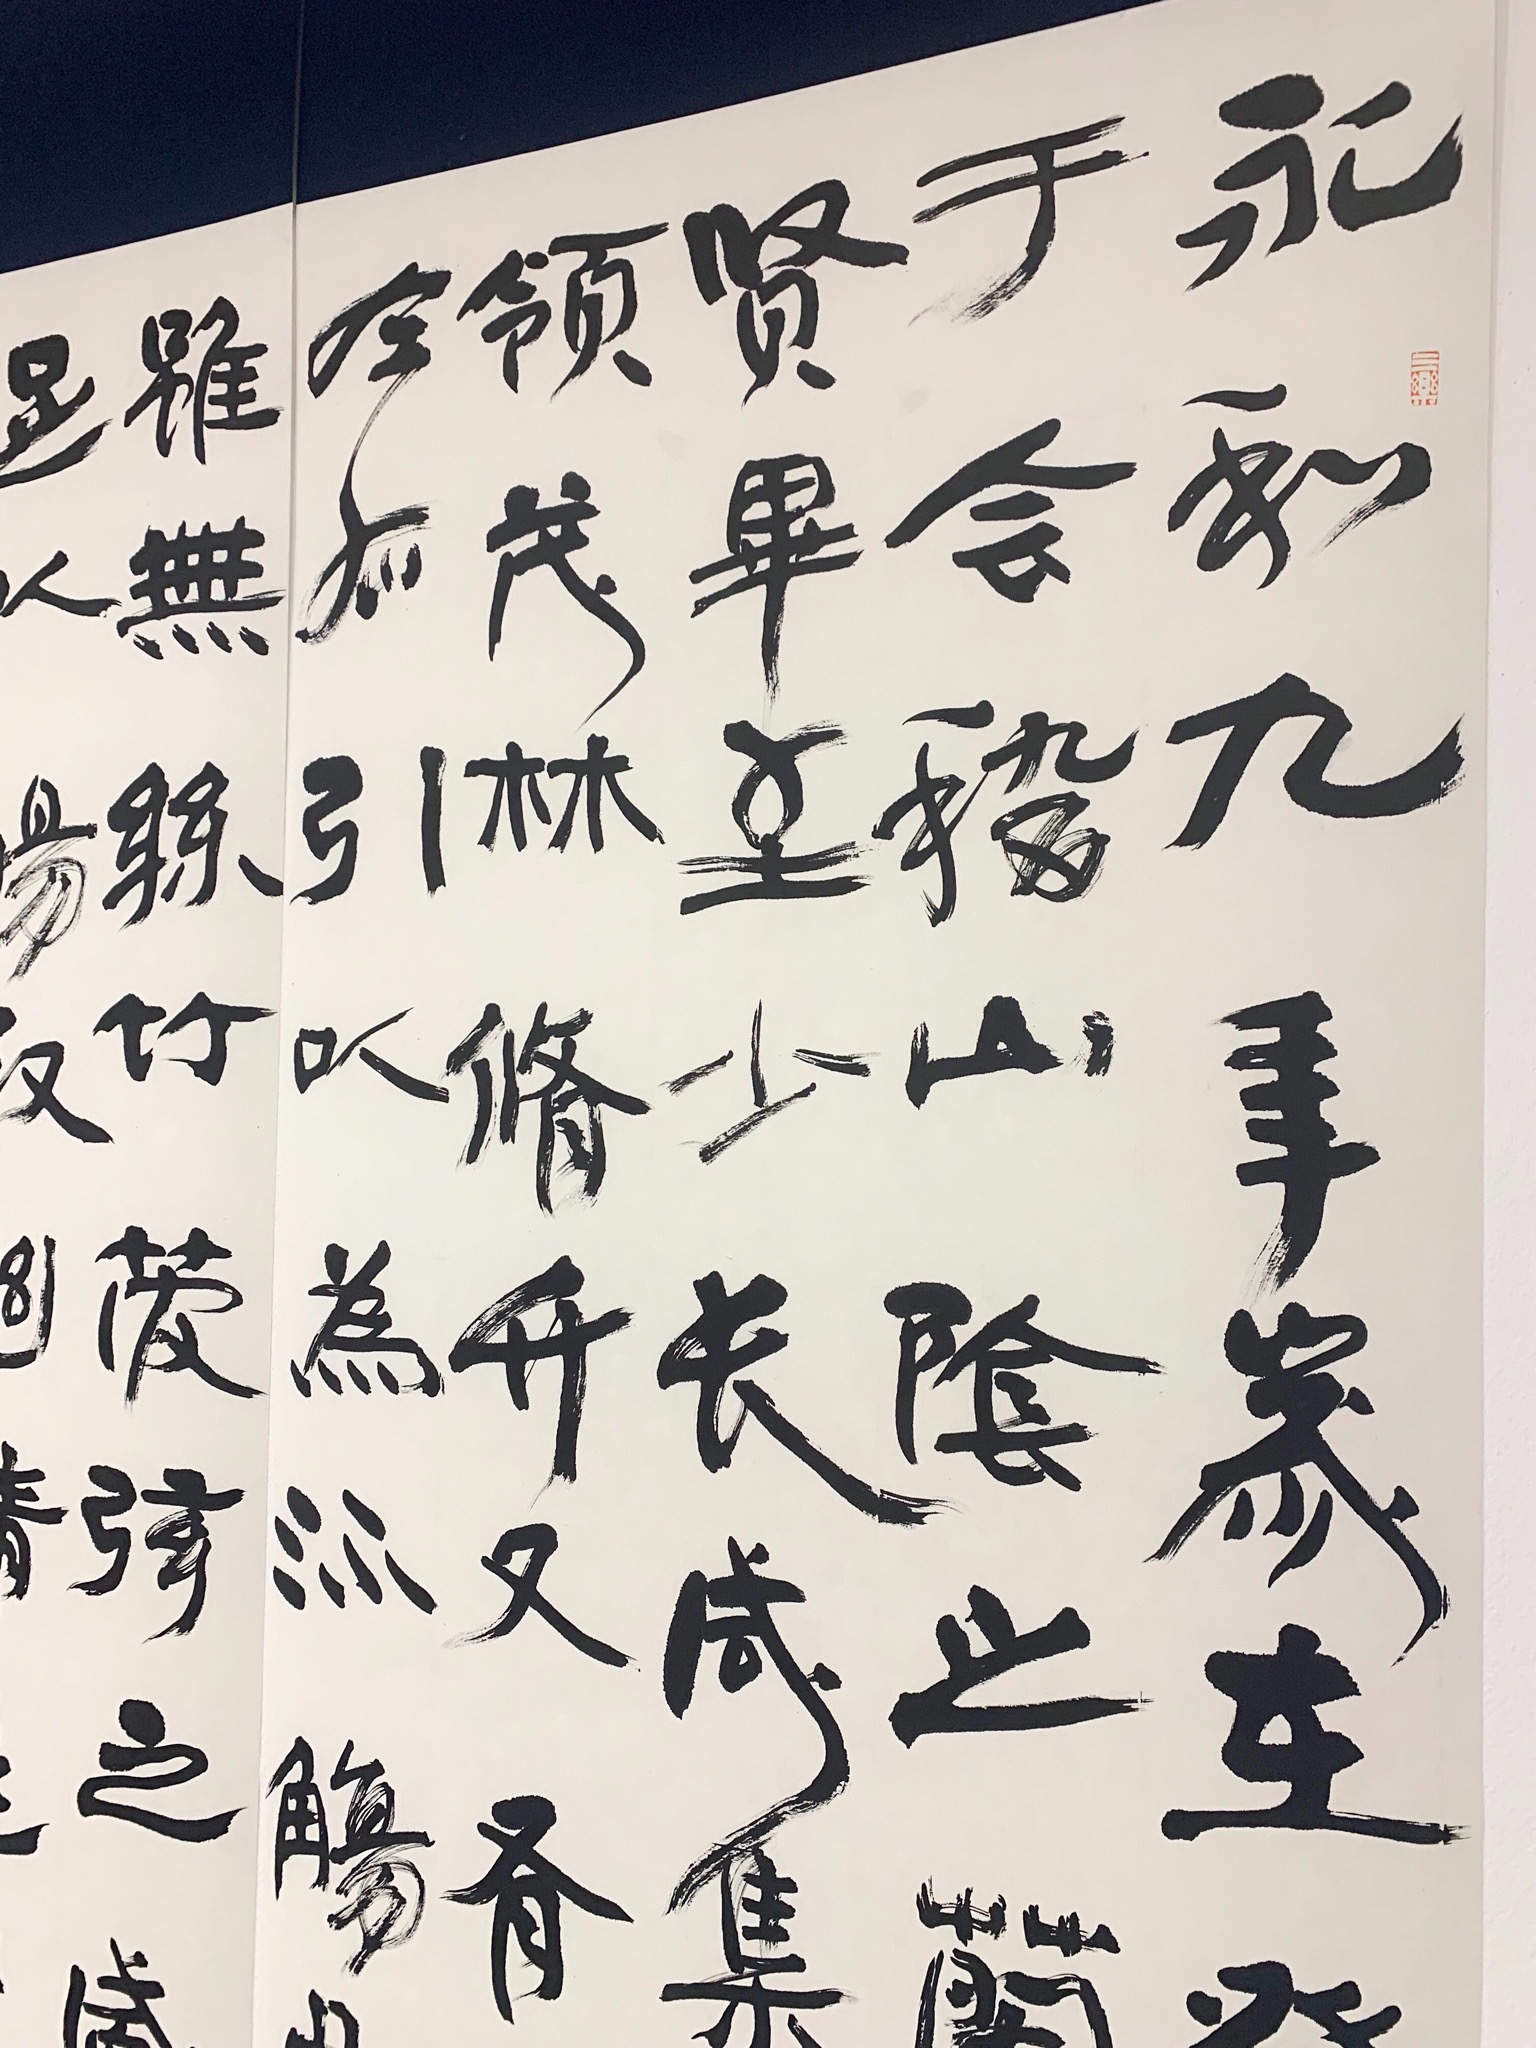 永和九年歲在癸
于会稽山陰之蘭
贤畢至少长咸集
領茂林脩竹又有
左右引以為流觴曲
雖無絲竹管弦之盛
足以暢叙幽情